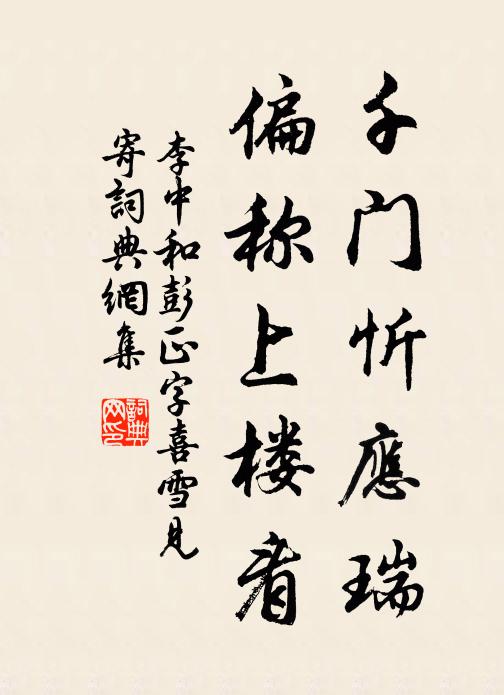 千门忻應瑞
偏称上楼看
李中和彭正字喜雪見
寄詞典網集
詞典
网印